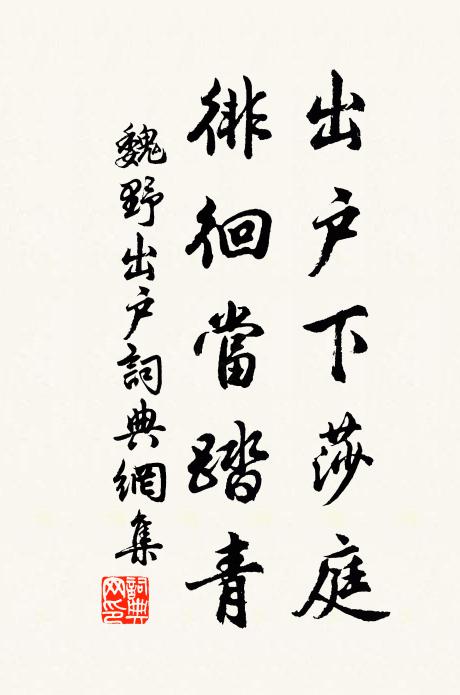 出户下莎庭
徘徊當踏青
魏野出户詞典網集
詞典网印